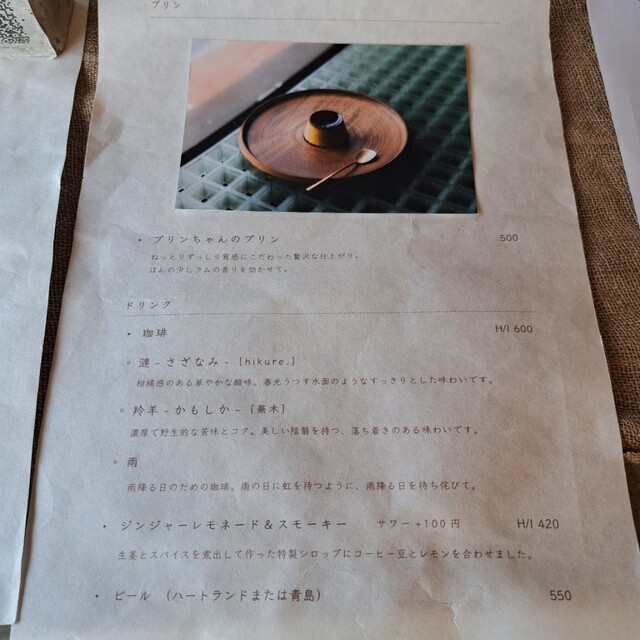 プリン
・ プリンちゃんのプリン 500
ねっとりずっしり質感にこだわった贅沢な仕上がり。
ほんの少しラムの香りを効かせて。
ドリンク
・ 珈琲 H/I 600
○ 漣 – さざなみ – [hikure.]
柑橘感のある華やかな酸味。春光うつす水面のようなすっきりとした味わいです。
○ 羚羊 – かもしか – [蕪木]
濃厚で野生的な苦味とコク。美しい陰翳を持つ、落ち着きのある味わいです。
○ 雨
雨降る日のための珈琲。雨の日に虹を待つように、雨降る日を待ち侘びて。
・ ジンジャーレモネード＆スモーキー サワー +100 円 H/I 420
生姜とスパイスを煮出して作った特製シロップにコーヒー豆とレモンを合わせました。
・ ビール （ハートランドまたは青島） 550